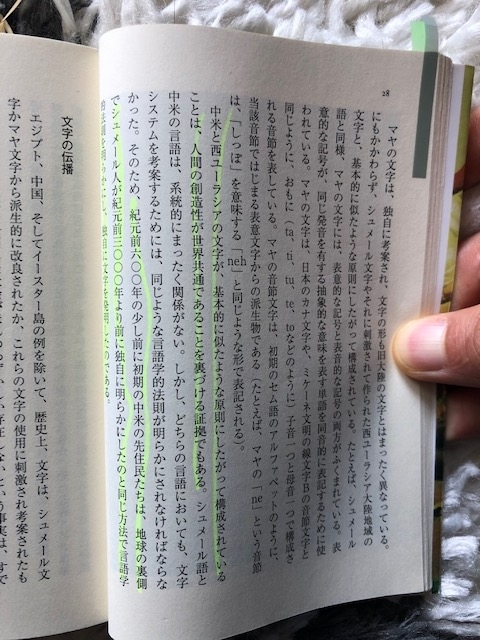 28
マヤの文字は、独自に考案され、文字の形も旧大陸の文字とはまったく異なっている。
にもかかわらず、シュメール文字やそれに刺激されて作られた西ユーラシア大陸地域の
文字と、基本的に似たような原則にしたがって構成されている。たとえば、シュメール
語と同様、マヤの文字には、表意的な記号と表音的な記号の両方がふくまれている。表
意的な記号が、同じ発音を有する抽象的な意味を表す単語を同音的に表記するために使
われている。マヤの文字は、日本のカナ文字や、ミケーネ文明の線文字Bの音節文字と
同じように、おもに(ta、ti、tu、te、toなどのように)子音一つと母音一つで構成さ
れる音節を表している。マヤの音節文字は、初期のセム語のアルファベットのように、
当該音節ではじまる表意文字からの派生物である(たとえば、マヤの「ne」という音節
は、「しっぽ」を意味する「neh」と同じような形で表記される)。
中米と西ユーラシアの文字が、基本的に似たような原則にしたがって構成されている
ことは、人間の創造性が世界共通であることを裏づける証拠でもある。シュメール語と
中米の言語は、系統的にまったく関係がない。しかし、どちらの言語においても、文字
システムを考案するためには、同じような言語学的法則が明らかにされなければならな
かった。そのため、紀元前六〇〇年の少し前に初期の中米の先住民たちは、地球の裏側
でシュメール人が紀元前三〇〇〇年より前に独自に明らかにしたのと同じ方法で言語学
的法則を明らかにし、独自に文字を発明したのである。
文字の伝播
エジプト、中国、そしてイースター島の例を除いて、歴史上、文字は、シュメール文
字かマヤ文字から派生的に改良されたか、これらの文字の使用に刺激され考案されたも